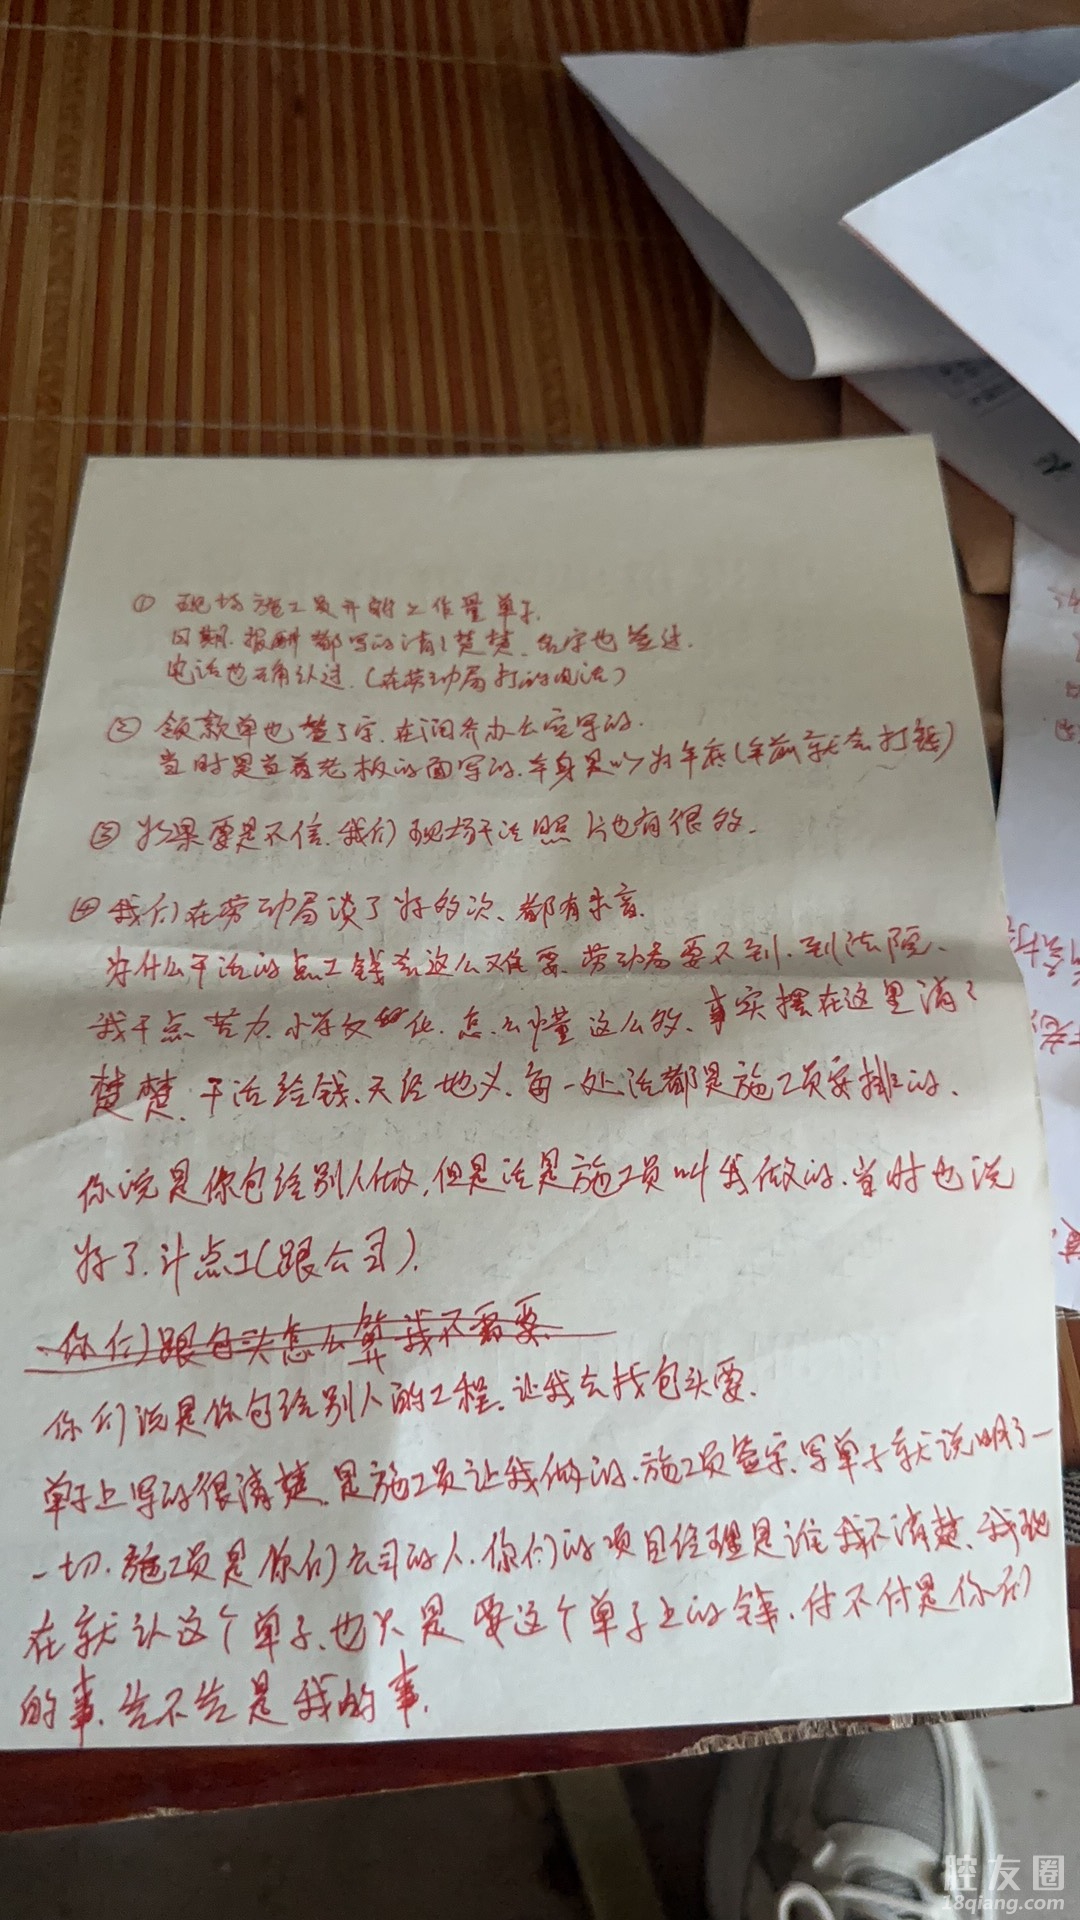 ① 现场施工员开的工作量单子.
日期.报酬都写的清清楚楚、名字也签过.
电话也确认过.(在劳动局打的电话)
② 领款单也签了字.在润齐办公室写的.
当时是当着老板的面写的.本身是以为年底(年前就会打钱)
③ 如果要是不信.我们现场干活照片也有很多.
④ 我们在劳动局谈了好多次、都有录音.
为什么干活的点工钱会这么难要、劳动局要不到.到法院.
我干点苦力.小学文化.怎么懂这么多、事实摆在这里清清
楚楚.干活给钱.天经地义.每一处活都是施工员安排的.
你说是你包给别人做,但是活是施工员叫我做的.当时也说
好了.计点工(跟公司).
你们跟包头怎么算我不需要.
你们说是你包给别人的工程.让我去找包头要.
单子上写的很清楚.是施工员让我做的.施工员签字.写单子就说明了一
一切.施工员是你们公司的人.你们的项目经理是谁我不清楚、我现
在就认这个单子.也只是要这个单子上的钱.付不付是你们
的事.告不告是我的事.
腔友圈
18qiang.com